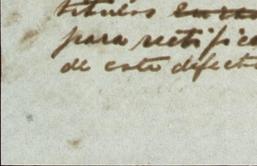 titulos
para rectifica
de este defecto